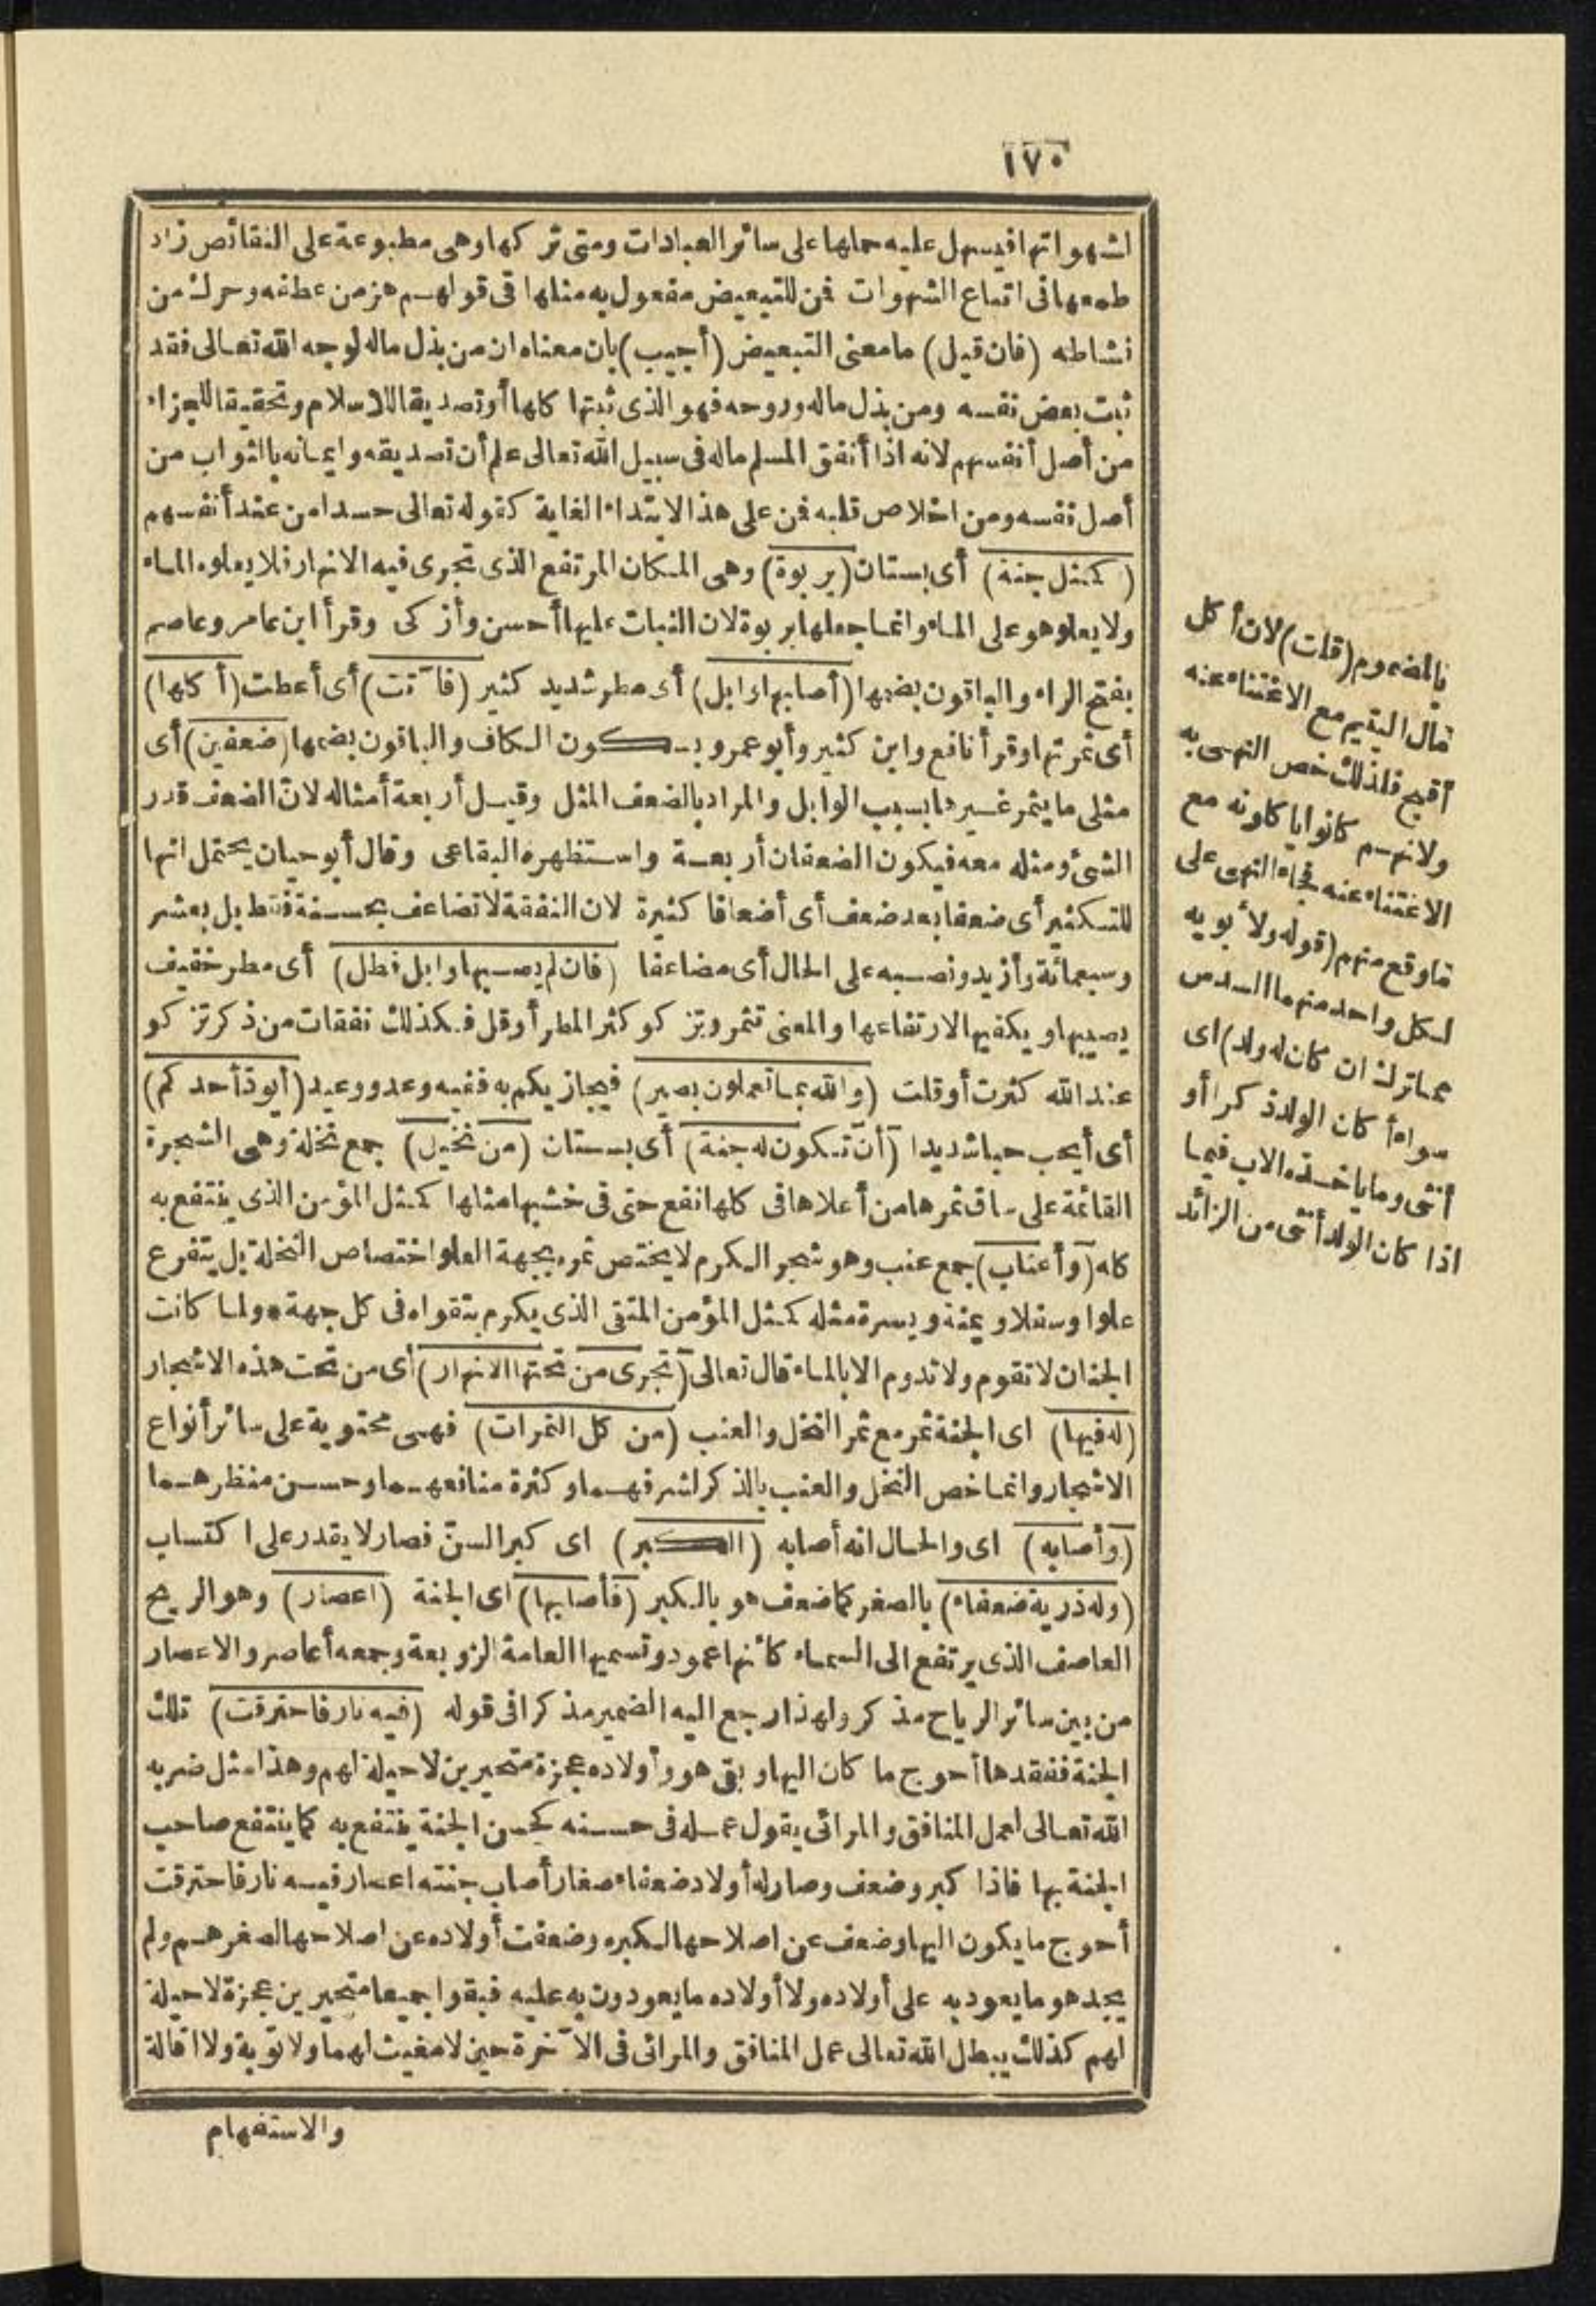 ١٧٠
لشهواتها فيسهل عليه حملها على سائر العبادات ومتى تركها وهى مطبوعة على النقائص زاد
طمعها فى اتباع الشهوات فمن للتبعيض مفعول به مثلها فى قولهم هز من عطفه وحرك من
نشاطه (فان قيل) ما معنى التبعيض (أجيب) بان معناه ان من بذل ماله لوجه الله تعالى فقد
ثبت بعض نفسه ومن بذل ماله وروحه فهو الذى ثبتها كلها أو تصديقا للاسلام وتحقيقا للجزاء
من أصل أنفسهم لانه اذا أنفق المسلم ماله فى سبيل الله تعالى علم أن تصديقه وايمانه بالثواب من
أصل نفسه ومن اخلاص قلبه فمن على هذا لابتداء الغاية كقوله تعالى حسدا من عند أنفسهم
(كمثل جنة) أى بستان (بربوة) وهى المكان المرتفع الذى تجرى فيه الانهار فلا يعلوه الماء
ولا يعلو هو على الماء وانما جعلها بربوة لان النبات عليها أحسن وأزكى وقرأ ابن عامر وعاصم
بفتح الراء والباقون بضمها (أصابها وابل) أى مطر شديد كثير (فآتت) أى أعطت (أكلها)
أى ثمرتها وقرأ نافع وابن كثير وأبو عمرو بسكون الكاف والباقون بضمها (ضعفين) أى
مثلى ما يثمر غيرها بسبب الوابل والمراد بالضعف المثل وقيل أربعة أمثاله لان الضعف قدر
الشئ ومثله معه فيكون الضعفان أربعة واستظهره البقاعى وقال أبو حيان يحتمل انها
للتكثير أى ضعفا بعد ضعف أى أضعافا كثيرة لان النفقة لا تضاعف بحسنة فقط بل بعشر
وسبعمائة وأزيد ونصبه على الحال أى مضاعفا (فان لم يصبها وابل فطل) أى مطر خفيف
يصيبها ويكفيها لارتفاعها والمعنى تثمر وتزكو كثر المطر أو قل فكذلك نفقات من ذكر تزكو
عند الله كثرت أو قلت (والله بما تعملون بصير) فيجازيكم به ففيه وعد ووعيد (أيود أحدكم)
أى أيحب حبا شديدا (أن تكون له جنة) أى بستان (من نخيل) جمع نخلة وهى الشجرة
القائمة على ساق ثمرها من أعلاها فى كلها نفع حتى فى خشبها مثلها كمثل المؤمن الذى ينتفع به
كله (وأعناب) جمع عنب وهو شجر الكرم لا يختص ثمره بجهة العلو اختصاص النخلة بل يتفرع
علوا وسفلا ويمنة ويسرة مثله كمثل المؤمن المتقى الذى يكرم بتقواه فى كل جهة * ولما كانت
الجنان لا تقوم ولا تدوم الا بالماء قال تعالى (تجرى من تحتها الانهار) أى من تحت هذه الاشجار
(له فيها) اى الجنة ثمر مع ثمر النخل والعنب (من كل الثمرات) فهى محتوية على سائر أنواع
الاشجار وانما خص النخل والعنب بالذكر لشرفهما وكثرة منافعهما وحسن منظرهما
(وأصابه) اى والحال انه أصابه (الكبر) اى كبر السن فصار لا يقدر على اكتساب
(وله ذرية ضعفاء) بالصغر كما ضعف هو بالكبر (فأصابها) اى الجنة (اعصار) وهو الريح
العاصف الذى يرتفع الى السماء كأنها عمود وتسميها العامة الزوبعة وجمعه أعاصر والاعصار
من بين سائر الرياح مذكر ولهذا رجع اليه الضمير مذكرا فى قوله (فيه نار فاحترقت) تلك
الجنة ففقدها أحوج ما كان اليها وبقى هو وأولاده عجزة متحيرين لا حيلة لهم وهذا مثل ضربه
الله تعالى لعمل المنافق والمرائى يقول عمله فى حسنه كحسن الجنة ينتفع به كما ينتفع صاحب
الجنة بها فاذا كبر وضعف وصار له أولاد ضعفاء صغار أصاب جنته اعصار فيه نار فاحترقت
أحوج ما يكون اليها وضعف عن اصلاحها لكبره وضعفت أولاده عن اصلاحها لصغرهم ولم
يجد هو ما يعود به على أولاده ولا أولاده ما يعودون به عليه فبقوا جميعا متحيرين عجزة لا حيلة
لهم كذلك يبطل الله تعالى عمل المنافق والمرائى فى الآخرة حين لا مغيث لهما ولا توبة ولا اقالة
والاستفهام
بالمضموم (قلت) لان أكل
مال اليتيم مع الاغتناء عنه
أقبح فلذلك خص النهى به
ولانهم كانوا ياكلونه مع
الاغتناء عنه فجاء النهى على
ما وقع منهم (قوله ولأبويه
لكل واحد منهما السدس
مما ترك ان كان له ولد) اى
سواء أكان الولد ذكرا أو
أنثى وما ياخذه الاب فيما
اذا كان الولد أنثى من الزائد